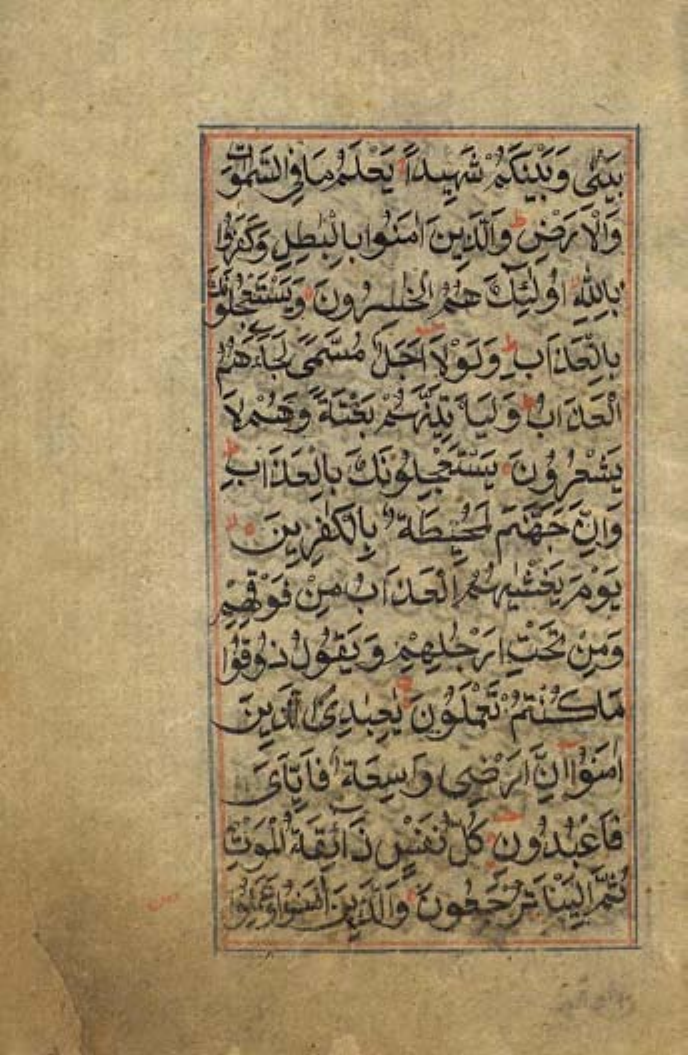 بَيْنِي وَبَيْنَكُمْ شَهِيدًا يَعْلَمُ مَا فِي السَّمٰوٰتِ
وَالْاَرْضِ ط وَالَّذِينَ اٰمَنُوا بِالْبٰطِلِ وَكَفَرُوا
بِاللّٰهِ اُولٰئِكَ هُمُ الْخٰسِرُونَ وَيَسْتَعْجِلُونَكَ
بِالْعَذَابِ ط وَلَوْلَا اَجَلٌ مُسَمًّى لَجَاءَهُمُ
الْعَذَابُ ط وَلَيَأْتِيَنَّهُمْ بَغْتَةً وَهُمْ لَا
يَشْعُرُونَ يَسْتَعْجِلُونَكَ بِالْعَذَابِ ط
وَاِنَّ جَهَنَّمَ لَمُحِيطَةٌ بِالْكٰفِرِينَ
يَوْمَ يَغْشٰيهُمُ الْعَذَابُ مِنْ فَوْقِهِمْ
وَمِنْ تَحْتِ اَرْجُلِهِمْ وَيَقُولُ ذُوقُوا
مَا كُنْتُمْ تَعْمَلُونَ يٰعِبَادِيَ الَّذِينَ
اٰمَنُوا اِنَّ اَرْضِي وَاسِعَةٌ فَاِيَّايَ
فَاعْبُدُونِ كُلُّ نَفْسٍ ذَائِقَةُ الْمَوْتِ
ثُمَّ اِلَيْنَا تُرْجَعُونَ وَالَّذِينَ اٰمَنُوا وَعَمِلُوا